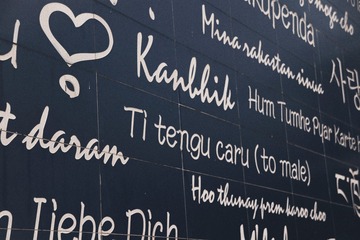 kupenda
Mina rakastan sinua
사랑
Kanbhik
Hum Tumhe Pyar Karte
t daram
Ti tengu caru (to male)
Hoo thunay prem karoo choo
Liebe Dich